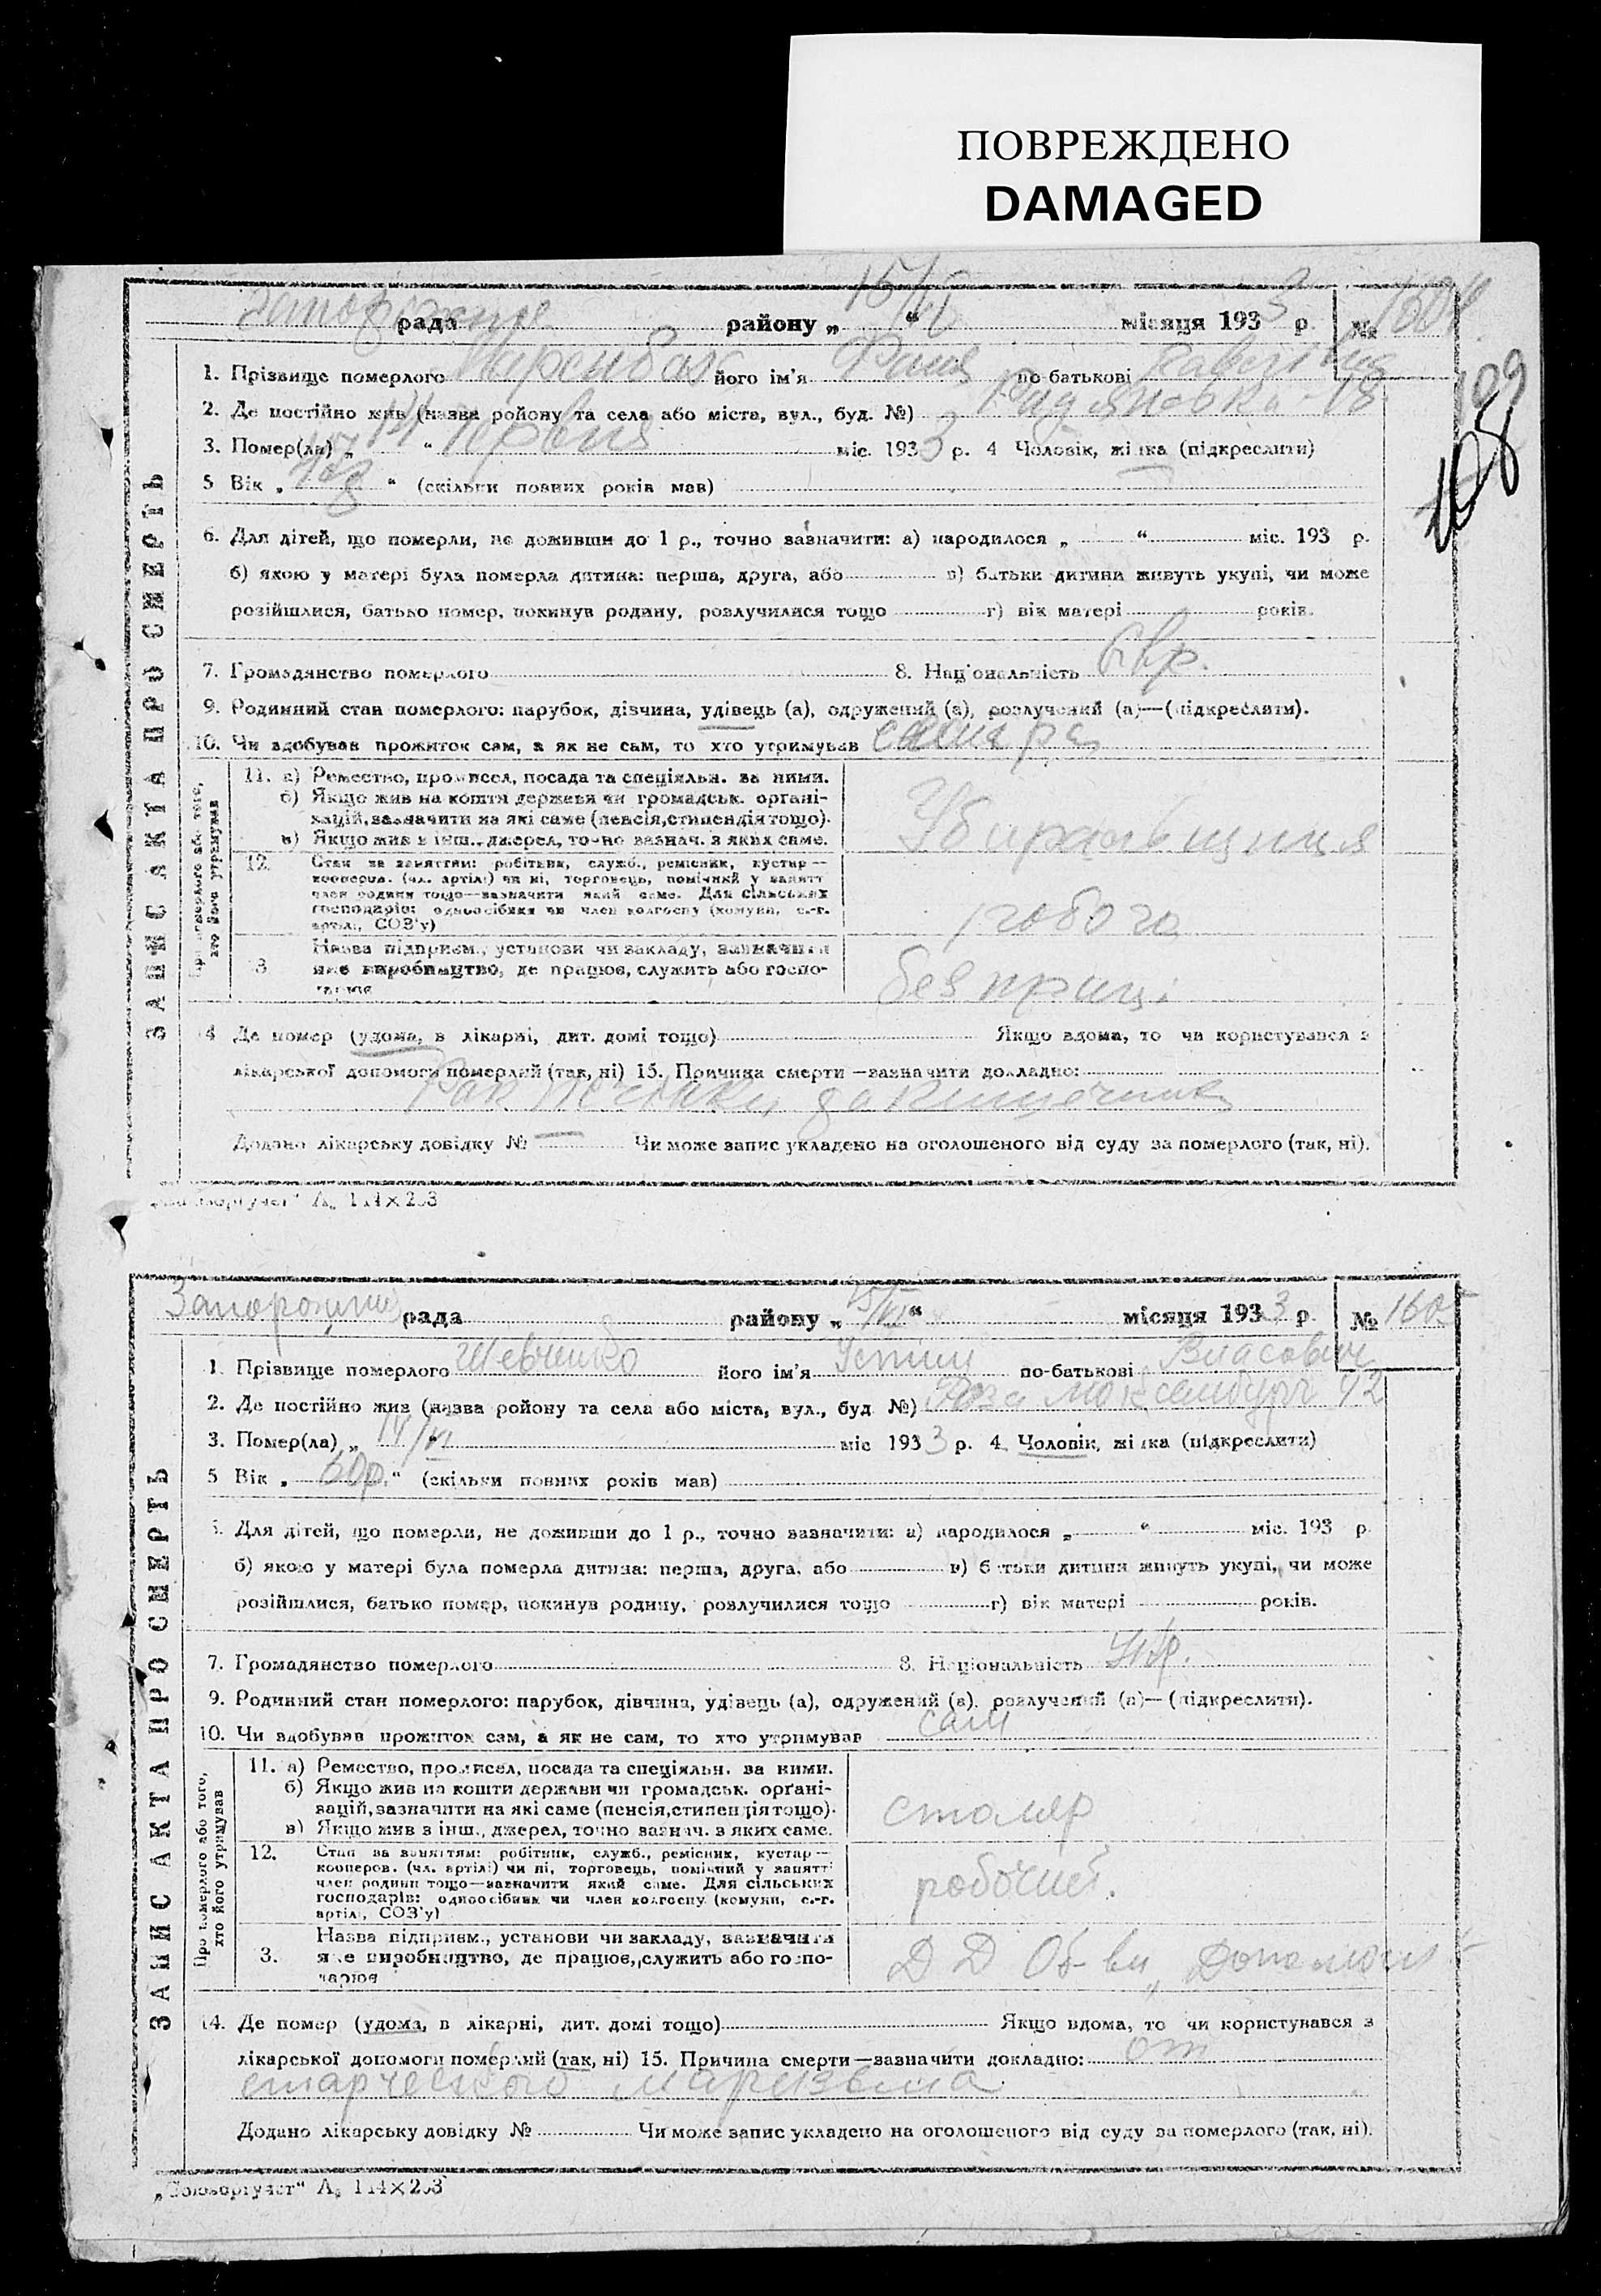 ПОВРЕЖДЕНО
DAMAGED
рада району „ 15/VI “ місяця 1933 р. № 1604
1. Прізвище померлого його ім'я Фаня по-батькові
2. Де постійно жив (назва ройону та села або міста, вул., буд. №) 18
3. Помер(ла) „ 14 “ червня міс. 1933 р. 4 Чоловік, жінка (підкреслити)
5 Вік „ “ (скільки повних років мав)
109
108
6. Для дітей, що померли, не доживши до 1 р., точно зазначити: а) народилося „ “ міс. 193 р.
б) якою у матері була померла дитина: перша, друга, або в) батьки дитини живуть укупі, чи може
розійшлися, батько помер, покинув родину, розлучилися тощо г) вік матері років.
7. Громадянство померлого 8. Національність євр.
9. Родинний стан померлого: парубок, дівчина, удівець (а), одружений (а), розлучений (а)—(підкреслити).
10. Чи здобував прожиток сам, а як не сам, то хто утримував
ЗАПИС АКТА ПРО СМЕРТЬ
Про померлого або того, хто його утримував
11. а) Ремество, промисел, посада та спеціяльн. за ними.
б) Якщо жив на кошти держави чи громадськ. органі-
зацій, зазначити на які саме (пенсія, стипендія тощо).
в) Якщо жив з інш., джерел, точно зазнач. з яких саме.
12. Стан за заняттям: робітник, служб., ремісник, кустар—
кооперов. (чл. артілі) чи ні, торговець, помічний у занятті
член родини тощо—зазначити який саме. Для сільських
господарів: одноосібник чи член колгоспу (комуни, с.-г.
артілі, СОЗ'у)
робоча
13 Назва підприєм., установи чи закладу, зазначити
яке виробництво, де працює, служить або госпо-
дарює
без праці
14 Де помер (удома, в лікарні, дит. домі тощо) Якщо вдома, то чи користувався з
лікарської допомоги померлий (так, ні) 15. Причина смерти—зазначити докладно:
Рак
Додано лікарську довідку № — Чи може запис укладено на оголошеного від суду за померлого (так, ні).
А₅ 114×203
рада району „ 15/VI “ місяця 1933 р. № 1605
1. Прізвище померлого Шевченко його ім'я Устин по-батькові Власович
2. Де постійно жив (назва ройону та села або міста, вул., буд №) Роза Люксембург 42
3. Помер(ла) „ 14/VI “ міс 1933 р. 4. Чоловік, жінка (підкреслити)
5 Вік „ 60р. “ (скільки повних років мав)
6. Для дітей, що померли, не доживши до 1 р., точно зазначити: а) народилося „ “ міс. 193 р.
б) якою у матері була померла дитина: перша, друга, або в) батьки дитини живуть укупі, чи може
розійшлися, батько помер, покинув родину, розлучилися тощо г) вік матері років.
7. Громадянство померлого 8. Національність Укр.
9. Родинний стан померлого: парубок, дівчина, удівець (а), одружений (а), розлучений (а)—(підкреслити).
10. Чи здобував прожиток сам, а як не сам, то хто утримував сам
ЗАПИС АКТА ПРО СМЕРТЬ
Про померлого або того, хто його утримував
11. а) Ремество, промисел, посада та спеціяльн. за ними.
б) Якщо жив на кошти держави чи громадськ. органі-
зацій, зазначити на які саме (пенсія, стипендія тощо).
в) Якщо жив з інш., джерел, точно зазнач. з яких саме.
столяр
12. Стан за заняттям: робітник, служб., ремісник, кустар—
кооперов. (чл. артілі) чи ні, торговець, помічний у занятті
член родини тощо—зазначити який саме. Для сільських
господарів: одноосібник чи член колгоспу (комуни, с.-г.
артілі, СОЗ'у)
робочий.
3. Назва підприєм., установи чи закладу, зазначити
яке виробництво, де працює, служить або госпо-
дарює
14. Де помер (удома, в лікарні, дит. домі тощо) Якщо вдома, то чи користувався з
лікарської допомоги померлий (так, ні) 15. Причина смерти—зазначити докладно: от
старческого маразма
Додано лікарську довідку № Чи може запис укладено на оголошеного від суду за померлого (так, ні).
„Союзоргучет“ А₅ 114×203